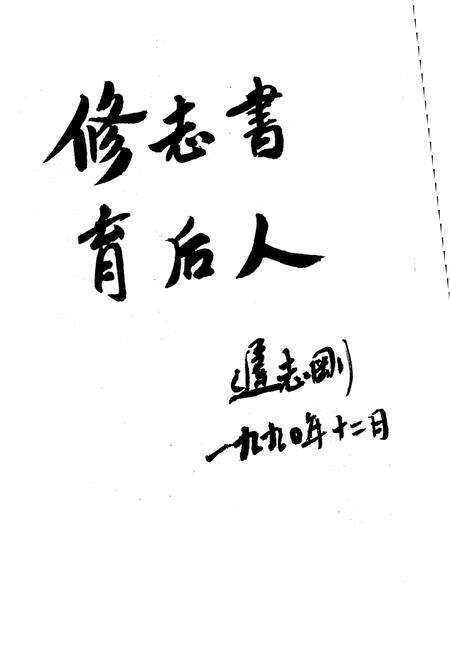 修志書
育后人
遲志剛
一九九〇年十二月